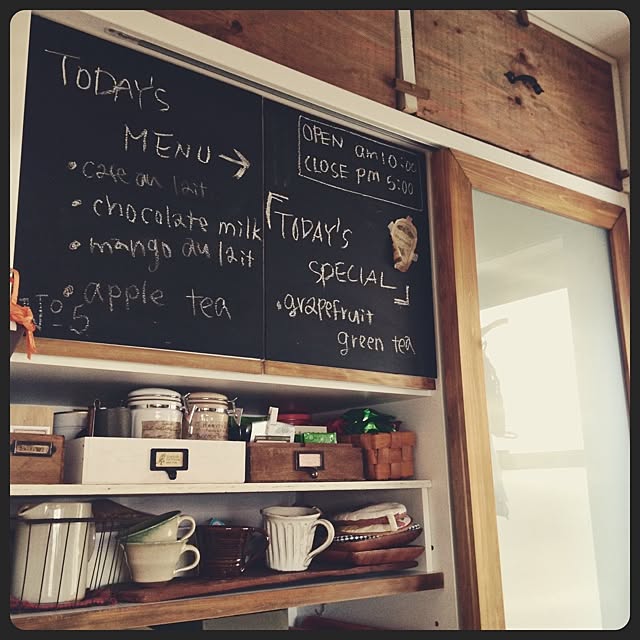 TODAY'S
MENU →
• cafe au lait
• chocolate milk
• mango au lait
• apple tea
No 5
OPEN am 10:00
CLOSE pm 5:00
「TODAY'S
SPECIAL」
• grapefruit
green tea